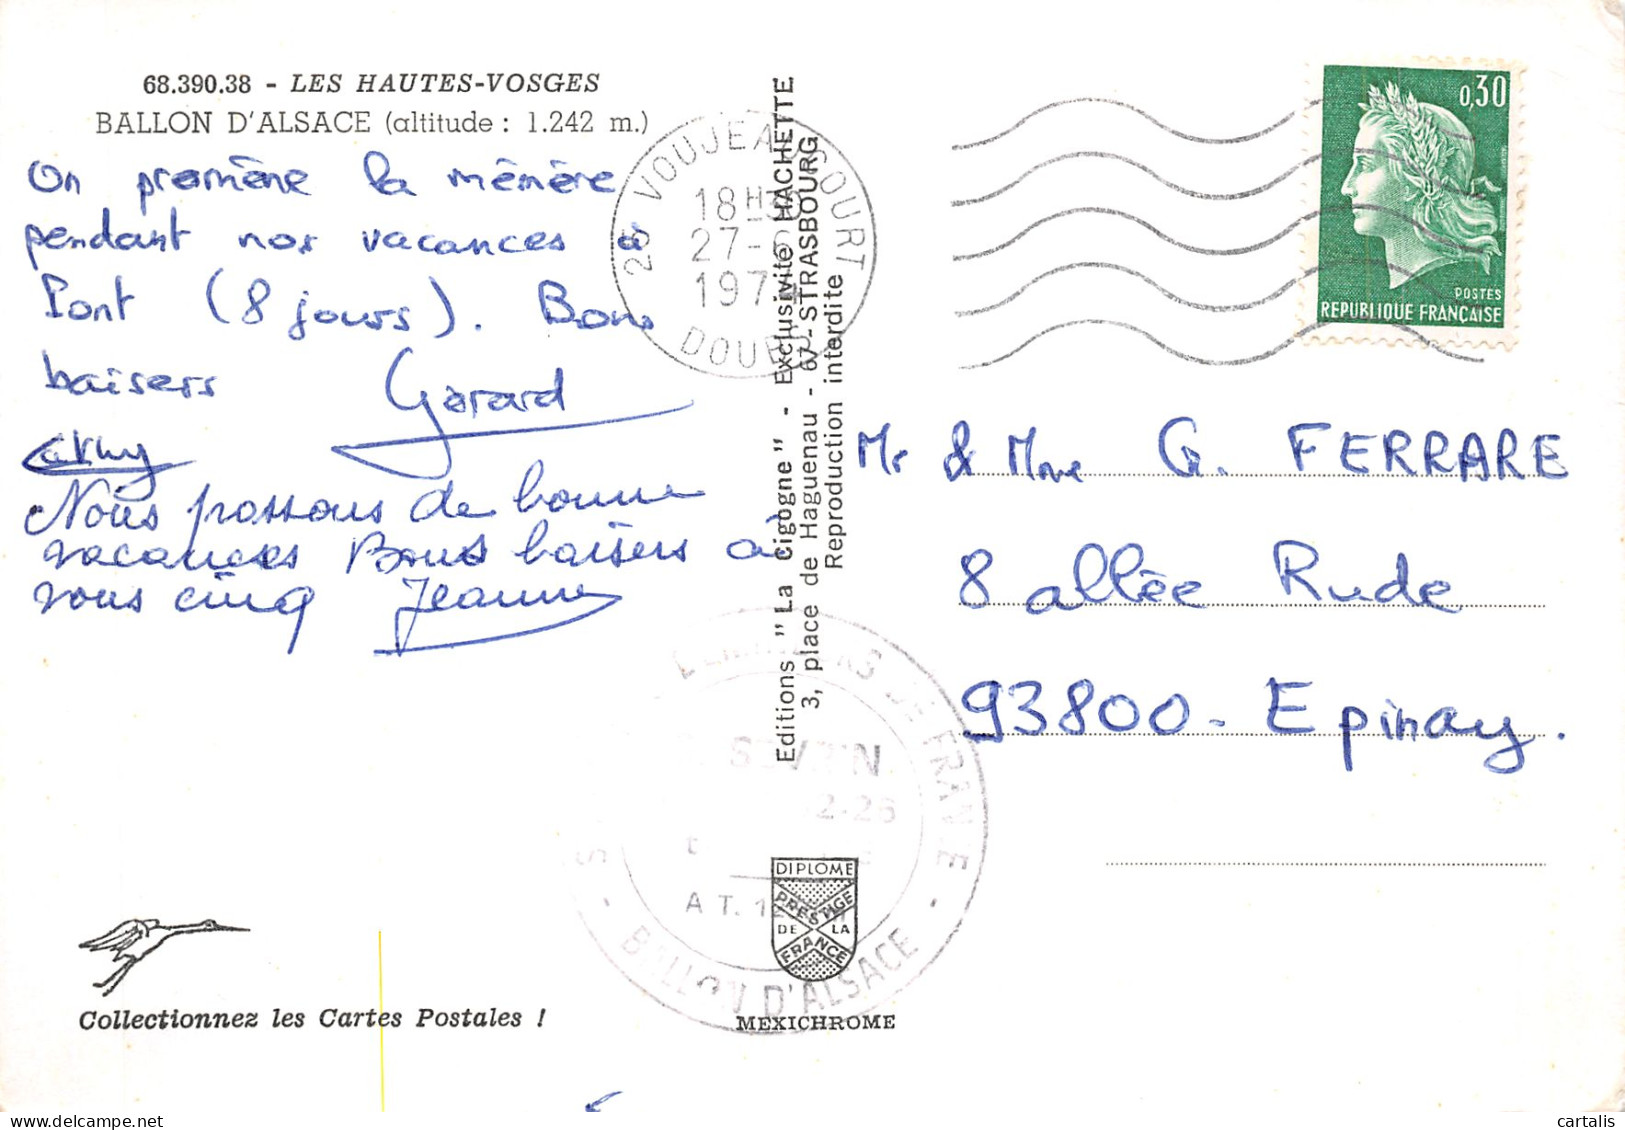 68.390.38 - LES HAUTES-VOSGES
BALLON D'ALSACE (altitude : 1.242 m.)
On promène la mémère
pendant nos vacances à
Pont (8 jours). Bons
baisers Gérard
Cathy
Nous passons de bonne
vacances Bons baisers à
vous cinq Jeanne
25 VOUJEAUCOURT
18H30
27-6
1974
DOUBS
Editions "La Cigogne" - Exclusivité HACHETTE
3, place de Haguenau - 67-STRASBOURG
Reproduction interdite
0,30
POSTES
REPUBLIQUE FRANÇAISE
Mr & Mme G. FERRARE
8 allée Rude
93800 - Epinay.
DE FRANCE
2-26
BALLON D'ALSACE
DIPLOME
PRESTIGE
DE LA
FRANCE
MEXICHROME
Collectionnez les Cartes Postales !
cartalis